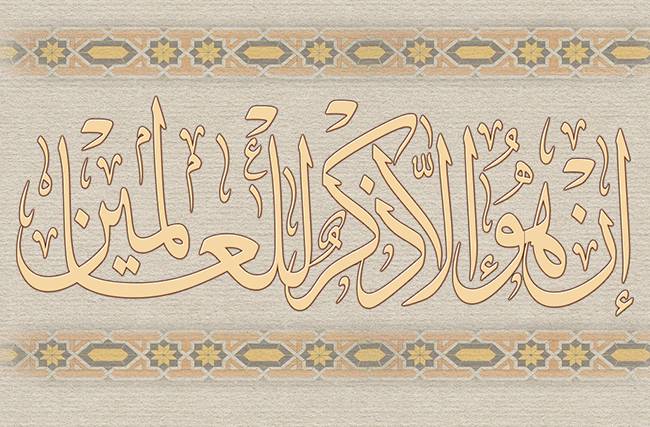 إن هو إلا ذكر للعالمين